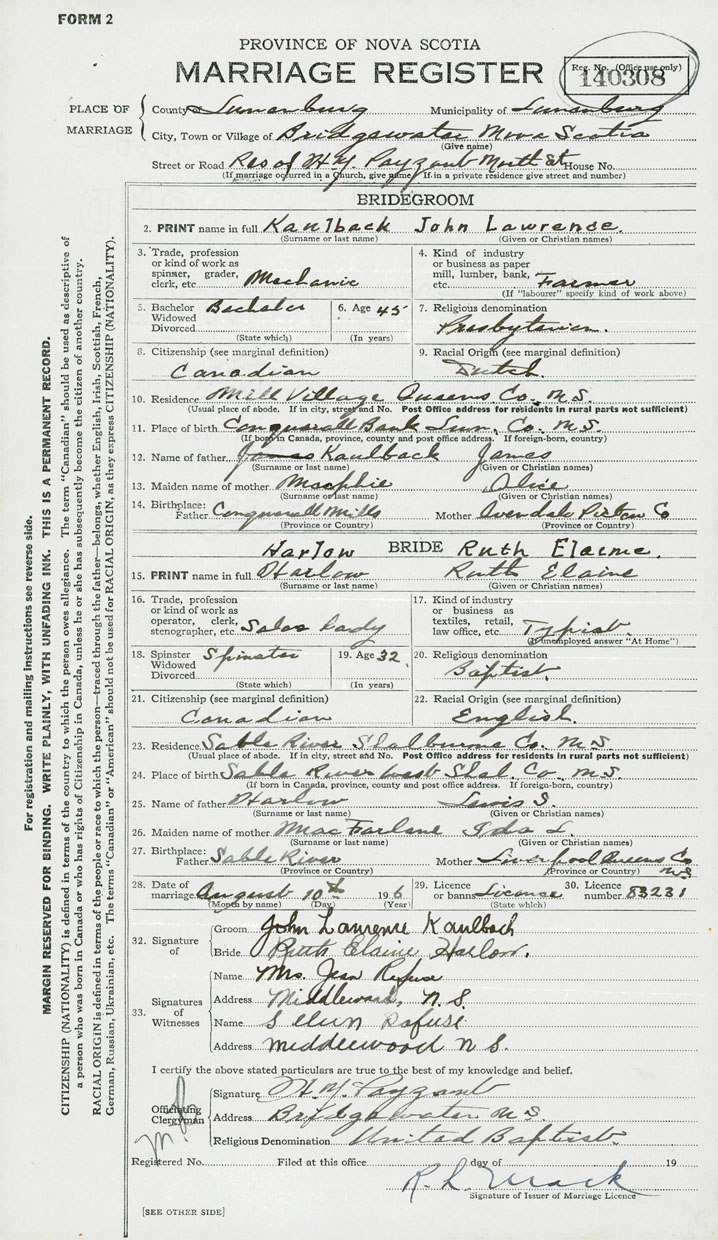 FORM 2
PROVINCE OF NOVA SCOTIA
MARRIAGE REGISTER
Reg. No. (Office use only)
140308
PLACE OF MARRIAGE
County of Lunenburg Municipality of Lunenburg
City, Town or Village of Bridgewater Nova Scotia
(Give name)
Street or Road Res of H.Y. Payzant North St. House No.
(If marriage occurred in a Church, give name) If in a private residence give street and number)
BRIDEGROOM
2. PRINT name in full Kaulback John Lawrence.
(Surname or last name) (Given or Christian names)
3. Trade, profession or kind of work as spinner, grader, clerk, etc. Mechanic
4. Kind of industry or business as paper mill, lumber, bank, etc. Farmer
(If "labourer" specify kind of work above)
5. Bachelor Widowed Divorced Bachelor
(State which)
6. Age 45
(In years)
7. Religious denomination
Presbyterian.
8. Citizenship (see marginal definition)
Canadian
9. Racial Origin (see marginal definition)
Dutch.
10. Residence Mill Village Queens Co. N.S.
(Usual place of abode. If in city, street and No. Post Office address for residents in rural parts not sufficient)
11. Place of birth Conquerall Bank Lun. Co. N.S.
(If born in Canada, province, county and post office address. If foreign-born, country)
12. Name of father James Kaulback James
(Surname or last name) (Given or Christian names)
13. Maiden name of mother Macphie Alice
(Surname or last name) (Given or Christian names)
14. Birthplace: Father Conquerall Mills Mother Avondale Pictou Co
(Province or Country) (Province or Country)
Harlow BRIDE Ruth Elaine.
15. PRINT name in full Harlow Ruth Elaine
(Surname or last name) (Given or Christian names)
16. Trade, profession or kind of work as operator, clerk, stenographer, etc. Sales Lady
17. Kind of industry or business as textiles, retail, law office, etc. Typist.
(If unemployed answer "At Home")
18. Spinster Widowed Divorced Spinster
(State which)
19. Age 32.
(In years)
20. Religious denomination
Baptist.
21. Citizenship (see marginal definition)
Canadian
22. Racial Origin (see marginal definition)
English.
23. Residence Sable River Shelburne Co. N.S.
(Usual place of abode. If in city, street and No. Post Office address for residents in rural parts not sufficient)
24. Place of birth Sable River West Shel. Co. N.S.
(If born in Canada, province, county and post office address. If foreign-born, country)
25. Name of father Harlow Lewis S.
(Surname or last name) (Given or Christian names)
26. Maiden name of mother MacFarlane Ida L.
(Surname or last name) (Given or Christian names)
27. Birthplace: Father Sable River Mother Liverpool Queens Co N.S
(Province or Country) (Province or Country)
28. Date of marriage August 10th 19
(Month by name) (Day) (Year)
29. Licence or banns License
(State which)
30. Licence number 83231
32. Signature of
Groom John Lawrence Kaulback
Bride Ruth Elaine Harlow.
33. Signatures of Witnesses
Name Mrs. Jean Refuse
Address Middlewood, N.S.
Name
Address Middlewood N S.
I certify the above stated particulars are true to the best of my knowledge and belief.
Officiating Clergyman
Signature H.Y. Payzant
Address Bridgewater N.S
Religious Denomination United Baptist.
Registered No. Filed at this office day of 19
R. L. Mack
Signature of Issuer of Marriage Licence
[SEE OTHER SIDE]
For registration and mailing instructions see reverse side.
MARGIN RESERVED FOR BINDING. WRITE PLAINLY, WITH UNFADING INK. THIS IS A PERMANENT RECORD.
CITIZENSHIP (NATIONALITY) is defined in terms of the country to which the person owes allegiance. The term "Canadian" should be used as descriptive of
a person who was born in Canada or who has rights of Citizenship in Canada, unless he or she has subsequently become the citizen of another country.
RACIAL ORIGIN is defined in terms of the people or race to which the person—traced through the father—belongs, whether English, Irish, Scottish, French,
German, Russian, Ukrainian, etc. The terms "Canadian" or "American" should not be used for RACIAL ORIGIN, as they express CITIZENSHIP (NATIONALITY).